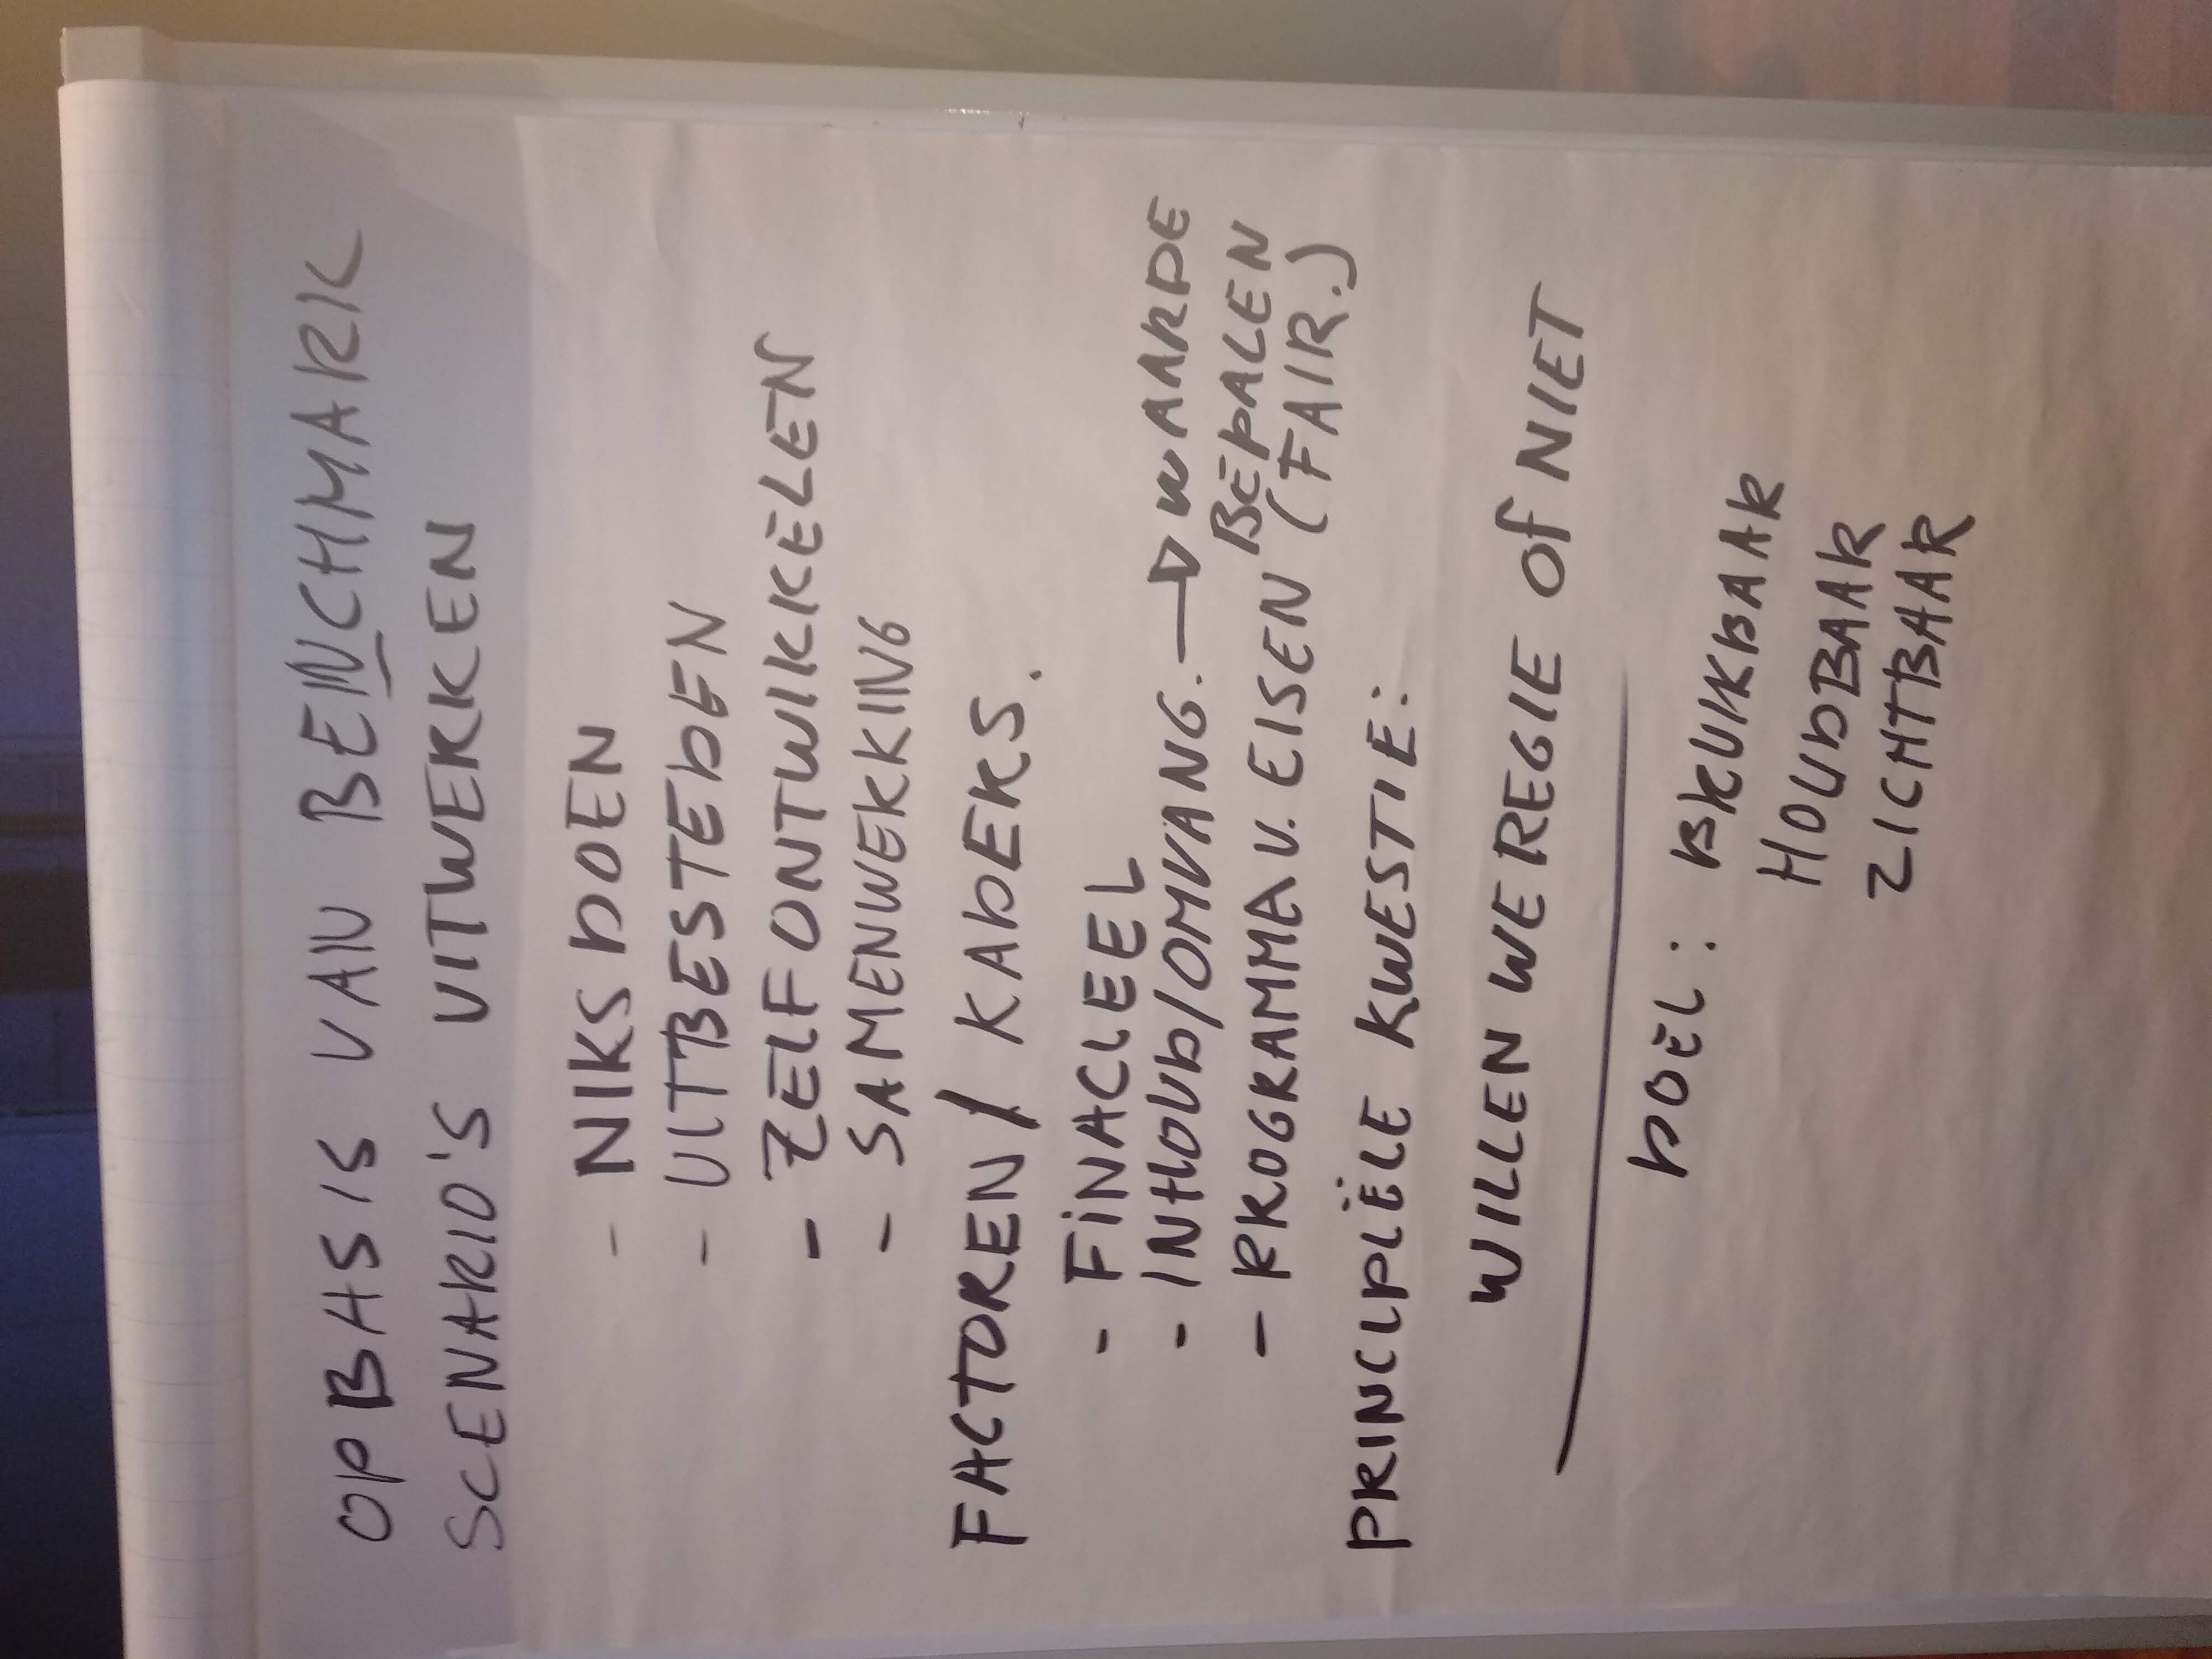 OP BASIS VAN BENCHMARK
SCENARIO'S UITWERKEN
- NIKS DOEN
- UITBESTEDEN
- ZELF ONTWIKKELEN
- SAMENWERKING
FACTOREN / KADERS.
- FINACLEEL
- INHOUD/OMVANG. → WAARDE
BEPALEN
- PROGRAMMA V. EISEN (FAIR.)
PRINCIPIËLE KWESTIE:
WILLEN WE REGIE OF NIET
DOEL: BRUIKBAAR
HOUDBAAR
ZICHTBAAR